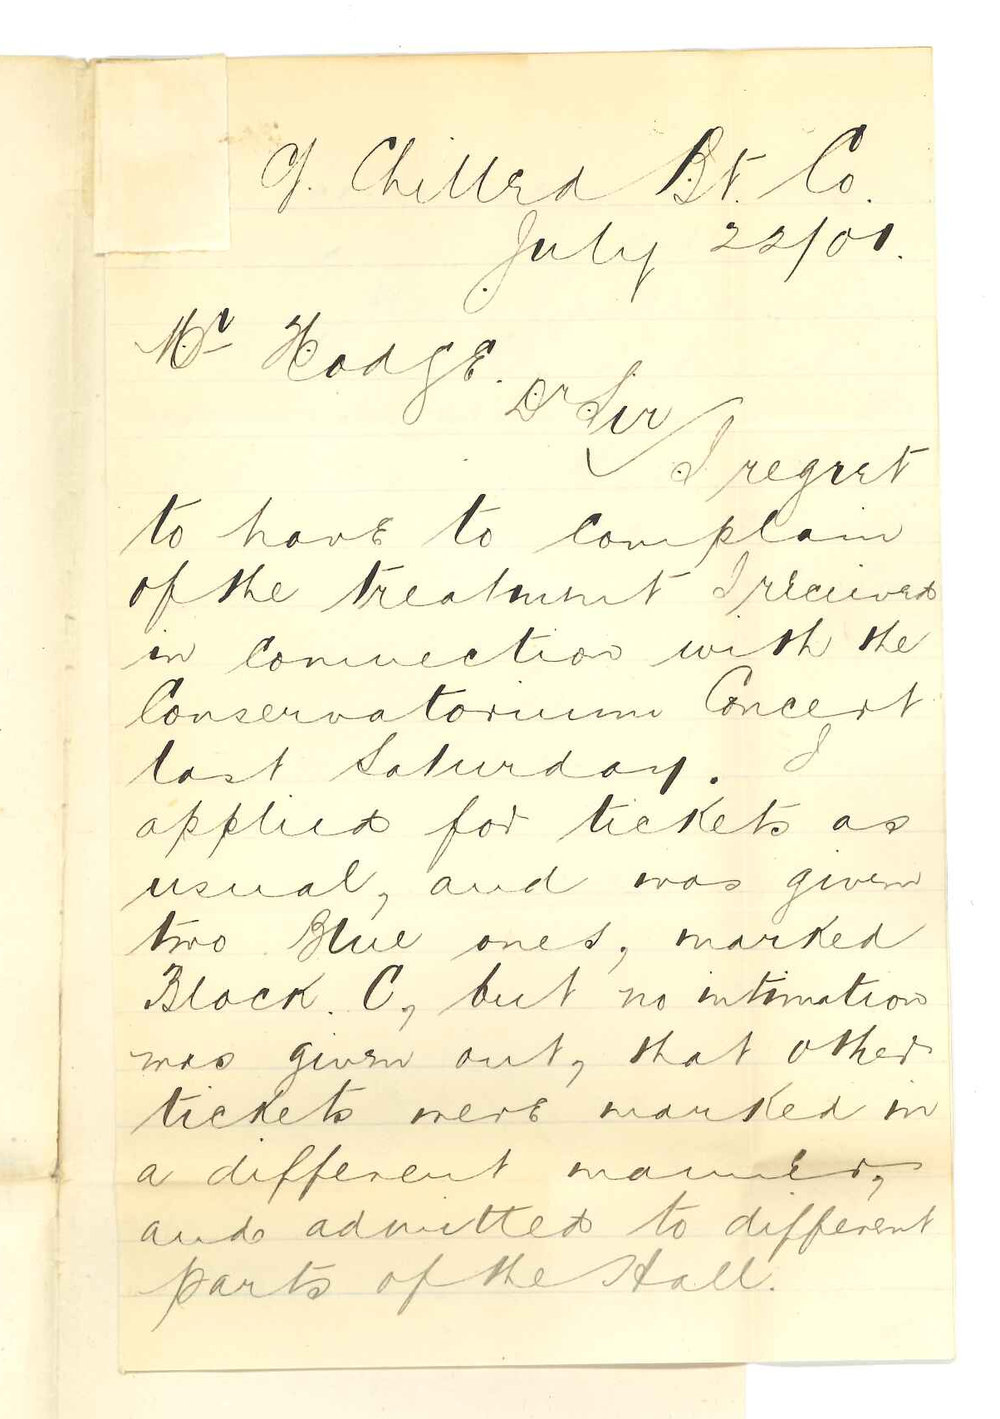 Chilled Bt. Co.
July 22/01.
Mr Hodge.
Dr Sir
I regret
to have to complain
of the treatment I received
in connection with the
Conservatorium Concert
last Saturday. I
applied for tickets as
usual, and was given
two Blue ones, marked
Block. C, but no intimation
was given out, that other
tickets were marked in
a different manner,
and admitted to different
parts of the Hall.